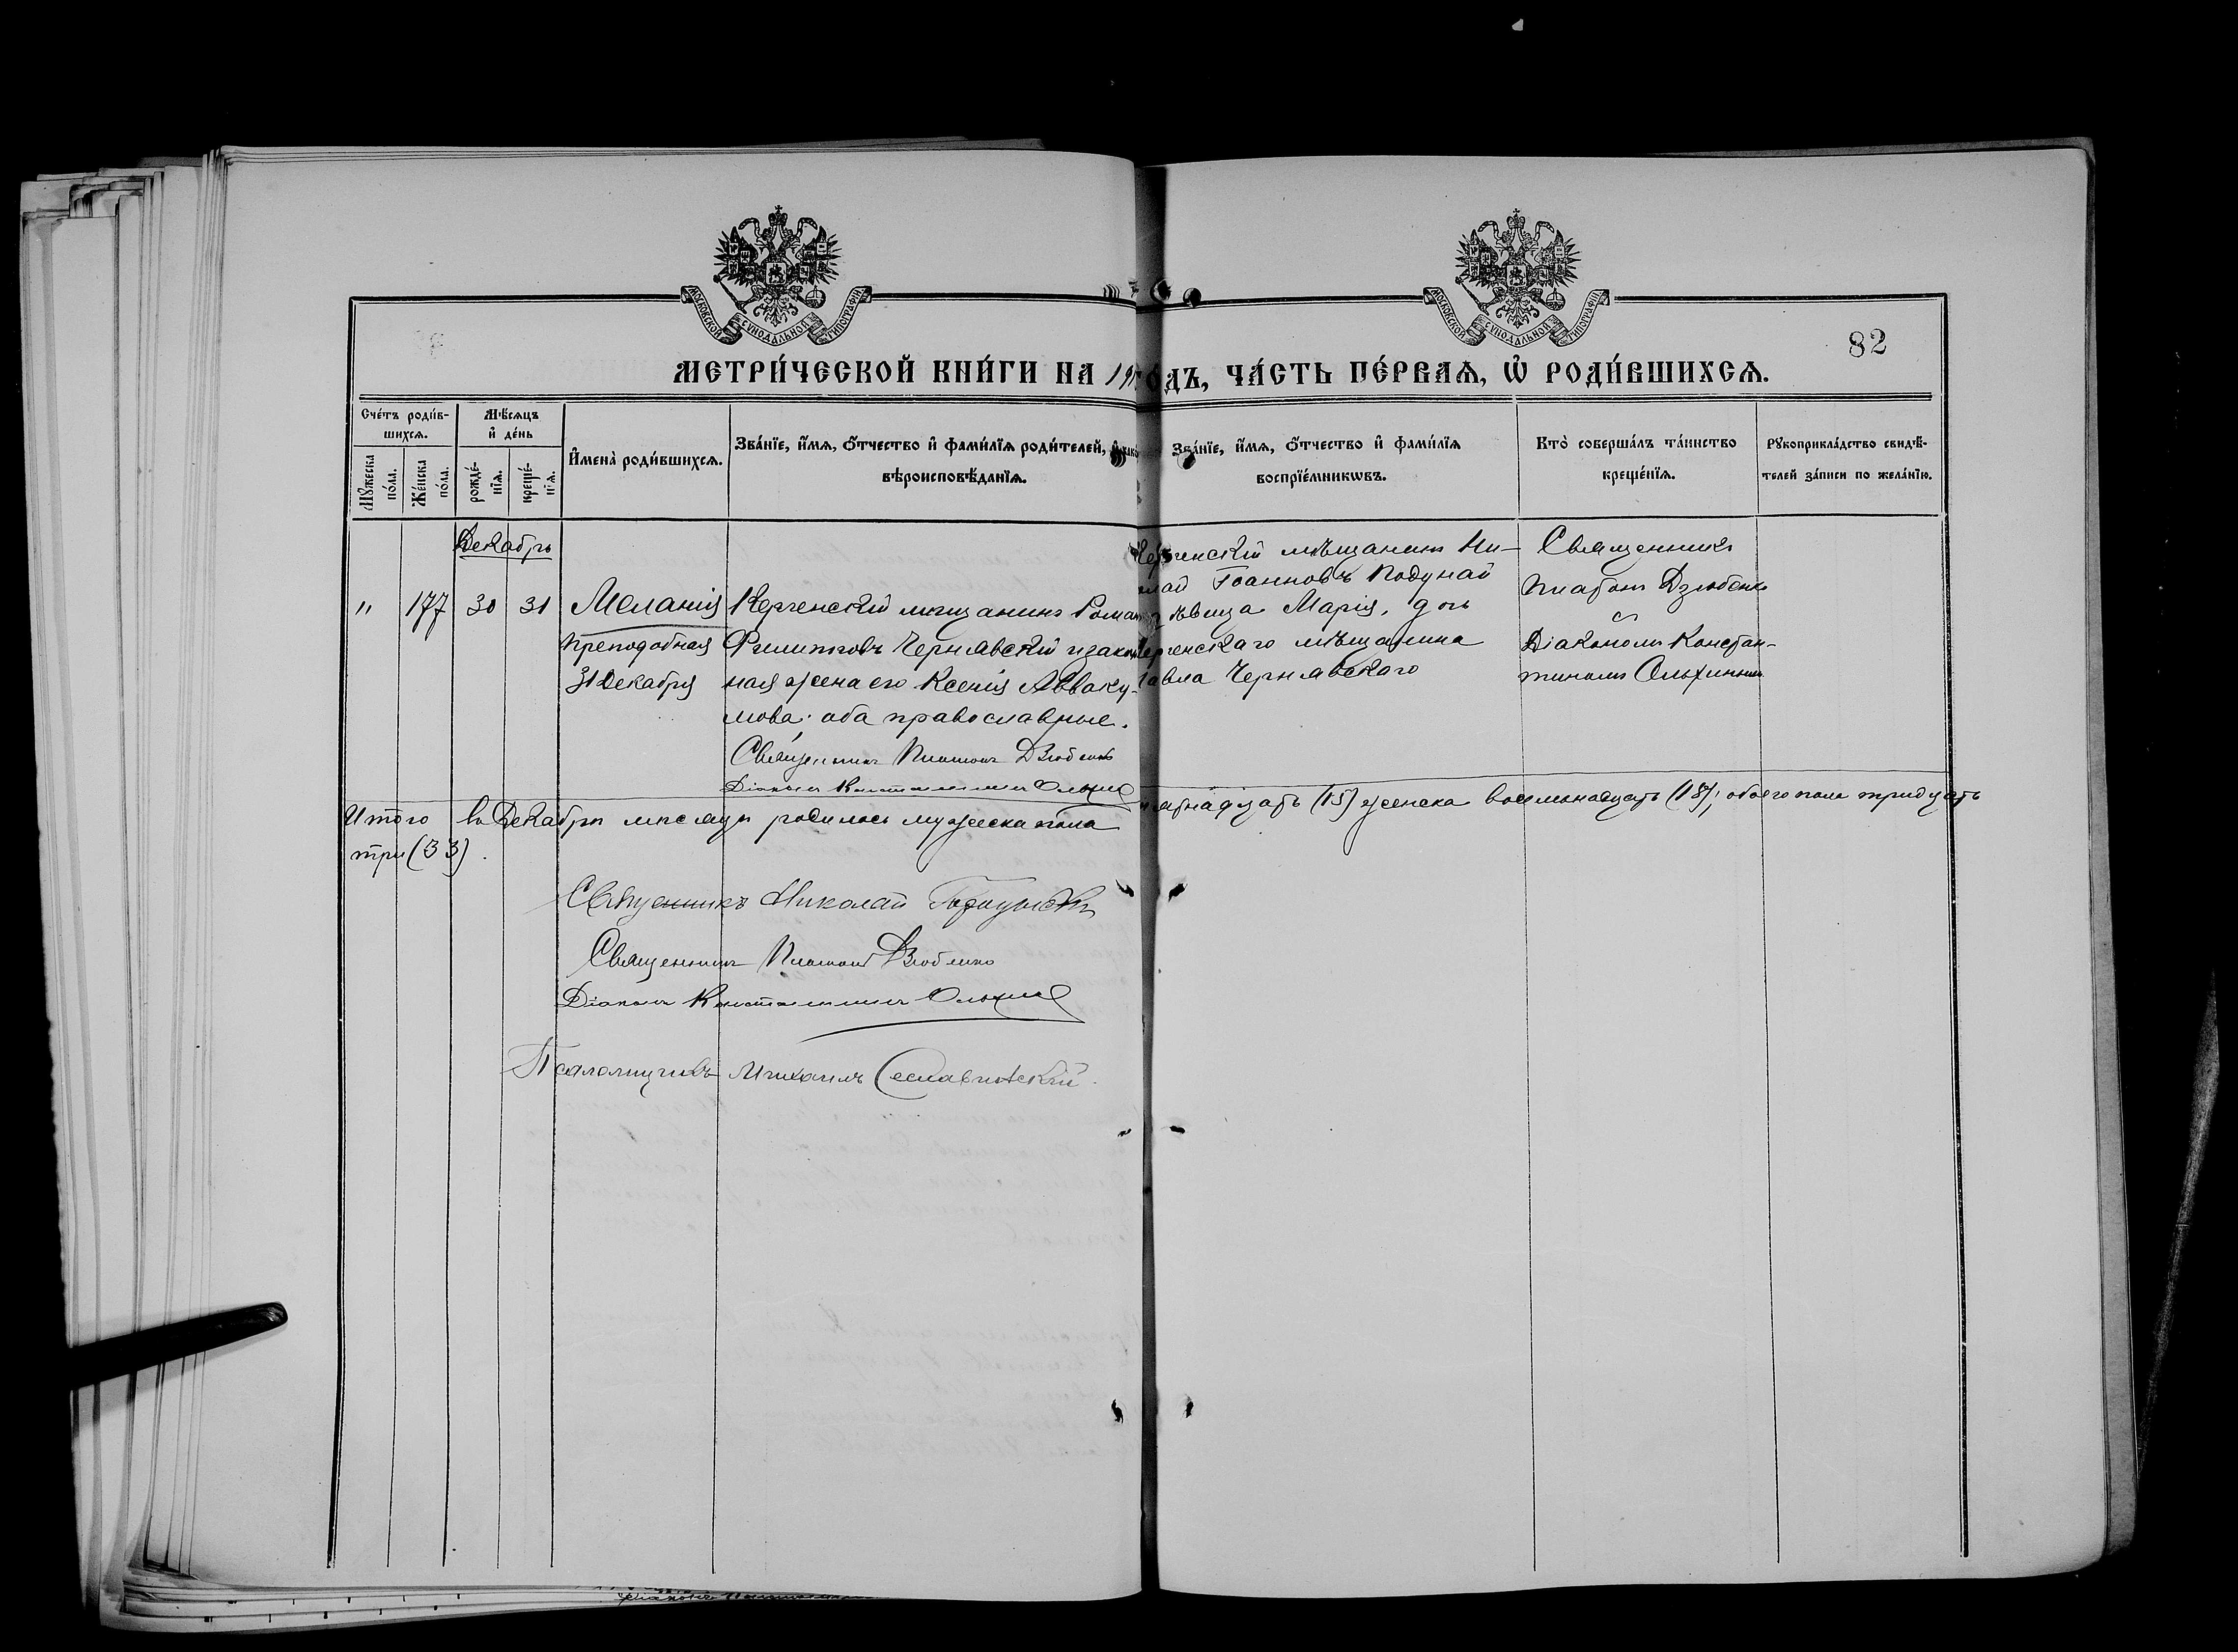 МОСКОВСКОЙ СѴНОДАЛЬНОЙ ТИПОГРАФІИ
МОСКОВСКОЙ СѴНОДАЛЬНОЙ ТИПОГРАФІИ
82
МЕТРИ́ЧЕСКОЙ КНИ́ГИ НА 19 ГО́ДЪ, ЧА́СТЬ ПЕ́РВАѦ, Ѿ РОДИ́ВШИХСѦ.
Сче́тъ роди́в-
шихсѧ.
Мꙋжеска по́ла.
Же́нска по́ла.
Мѣ́сѧцъ
и҆ де́нь
рожде́-
нїѧ.
креще́-
нїѧ.
И҆мена̀ роди́вшихсѧ.
Зва́нїе, и҆́мѧ, ѻ҆́тчество и҆ фами́лїѧ роди́телей, и҆
вѣроисповѣ́данїѧ.
Зва́нїе, и҆́мѧ, ѻ҆́тчество и҆ фами́лїѧ
воспрїе́мникѡвъ.
Кто̀ соверша́лъ та́инство
креще́нїѧ.
Рꙋкоприкла́дство свидѣ́-
телей за́писи по жела́нїю.
Декабрь
" 177 30 31
Меланія
Преподобная
31 Декабря
Керченскій мѣщанинъ Роман
Филипповъ Чернявскій и закон
ная жена его Ксенія Авваку-
мова; оба православные.
Священникъ Платонъ Дзюбенко
Діаконъ Константинъ Ольхин
Керченскій мѣщанинъ Ни-
лай Іоанновъ Подунай
дѣвица Марія, дочь
Керченскаго мѣщанина
Павла Чернявскаго
Священникъ
Платонъ Дзюбенко
съ
Діакономъ Констан-
тиномъ Ольхинымъ
Итого въ Декабрѣ мѣсяцѣ родилось мужеска пола пятнадцать (15) женска восемнадцать (18); обоего пола тридцать
три (33).
Священникъ Николай
Священникъ Платонъ Дзюбенко
Діаконъ Константинъ Ольхин
Псаломщикъ Михаилъ Сеславинскій.